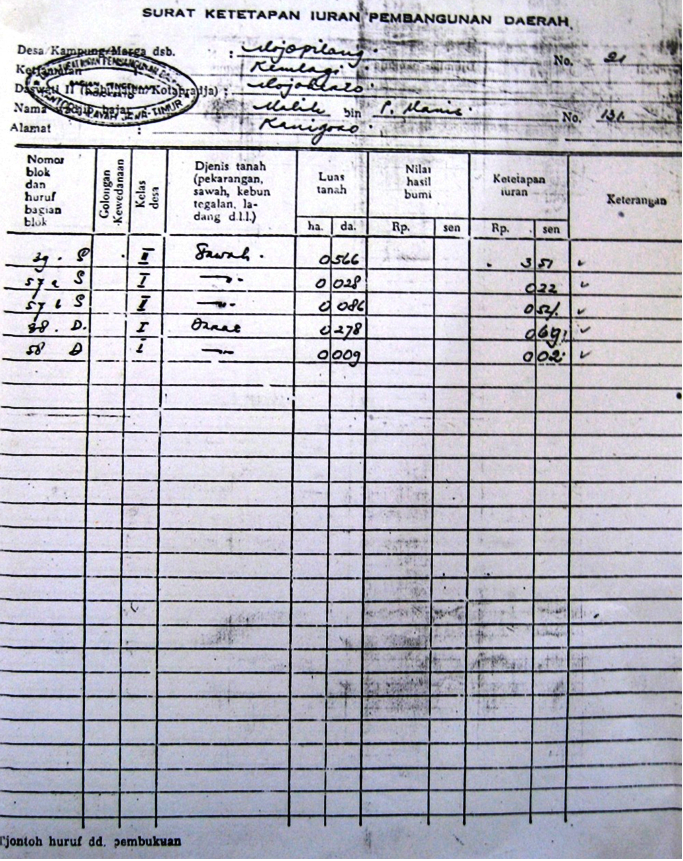 SURAT KETETAPAN IURAN PEMBANGUNAN DAERAH
Desa/Kampung/Marga dsb. : Mojopilang. No. 21
: Kemlagi
Daswati II (Kabupaten/Kotapradja) : Mojokerto
JAWA-TIMUR
Nama wadjib bajar : bin P. Manis No. 131.
Alamat :
Nomor blok dan huruf bagian blok
Golongan Kewedanaan
Kelas desa
Djenis tanah (pekarangan, sawah, kebun tegalan, ladang d.l.l.)
Luas tanah
Nilai hasil bumi
Ketetapan iuran
Keterangan
ha. da. Rp. sen Rp. sen
39. S III Sawah. 0 566 3 51
57 a S I 0 028 0 22
57 b S II 0 086 0 54
D. I Darat 0 278 0 69
58 D I 0 009 0 02
Tjontoh huruf dd. pembukuan